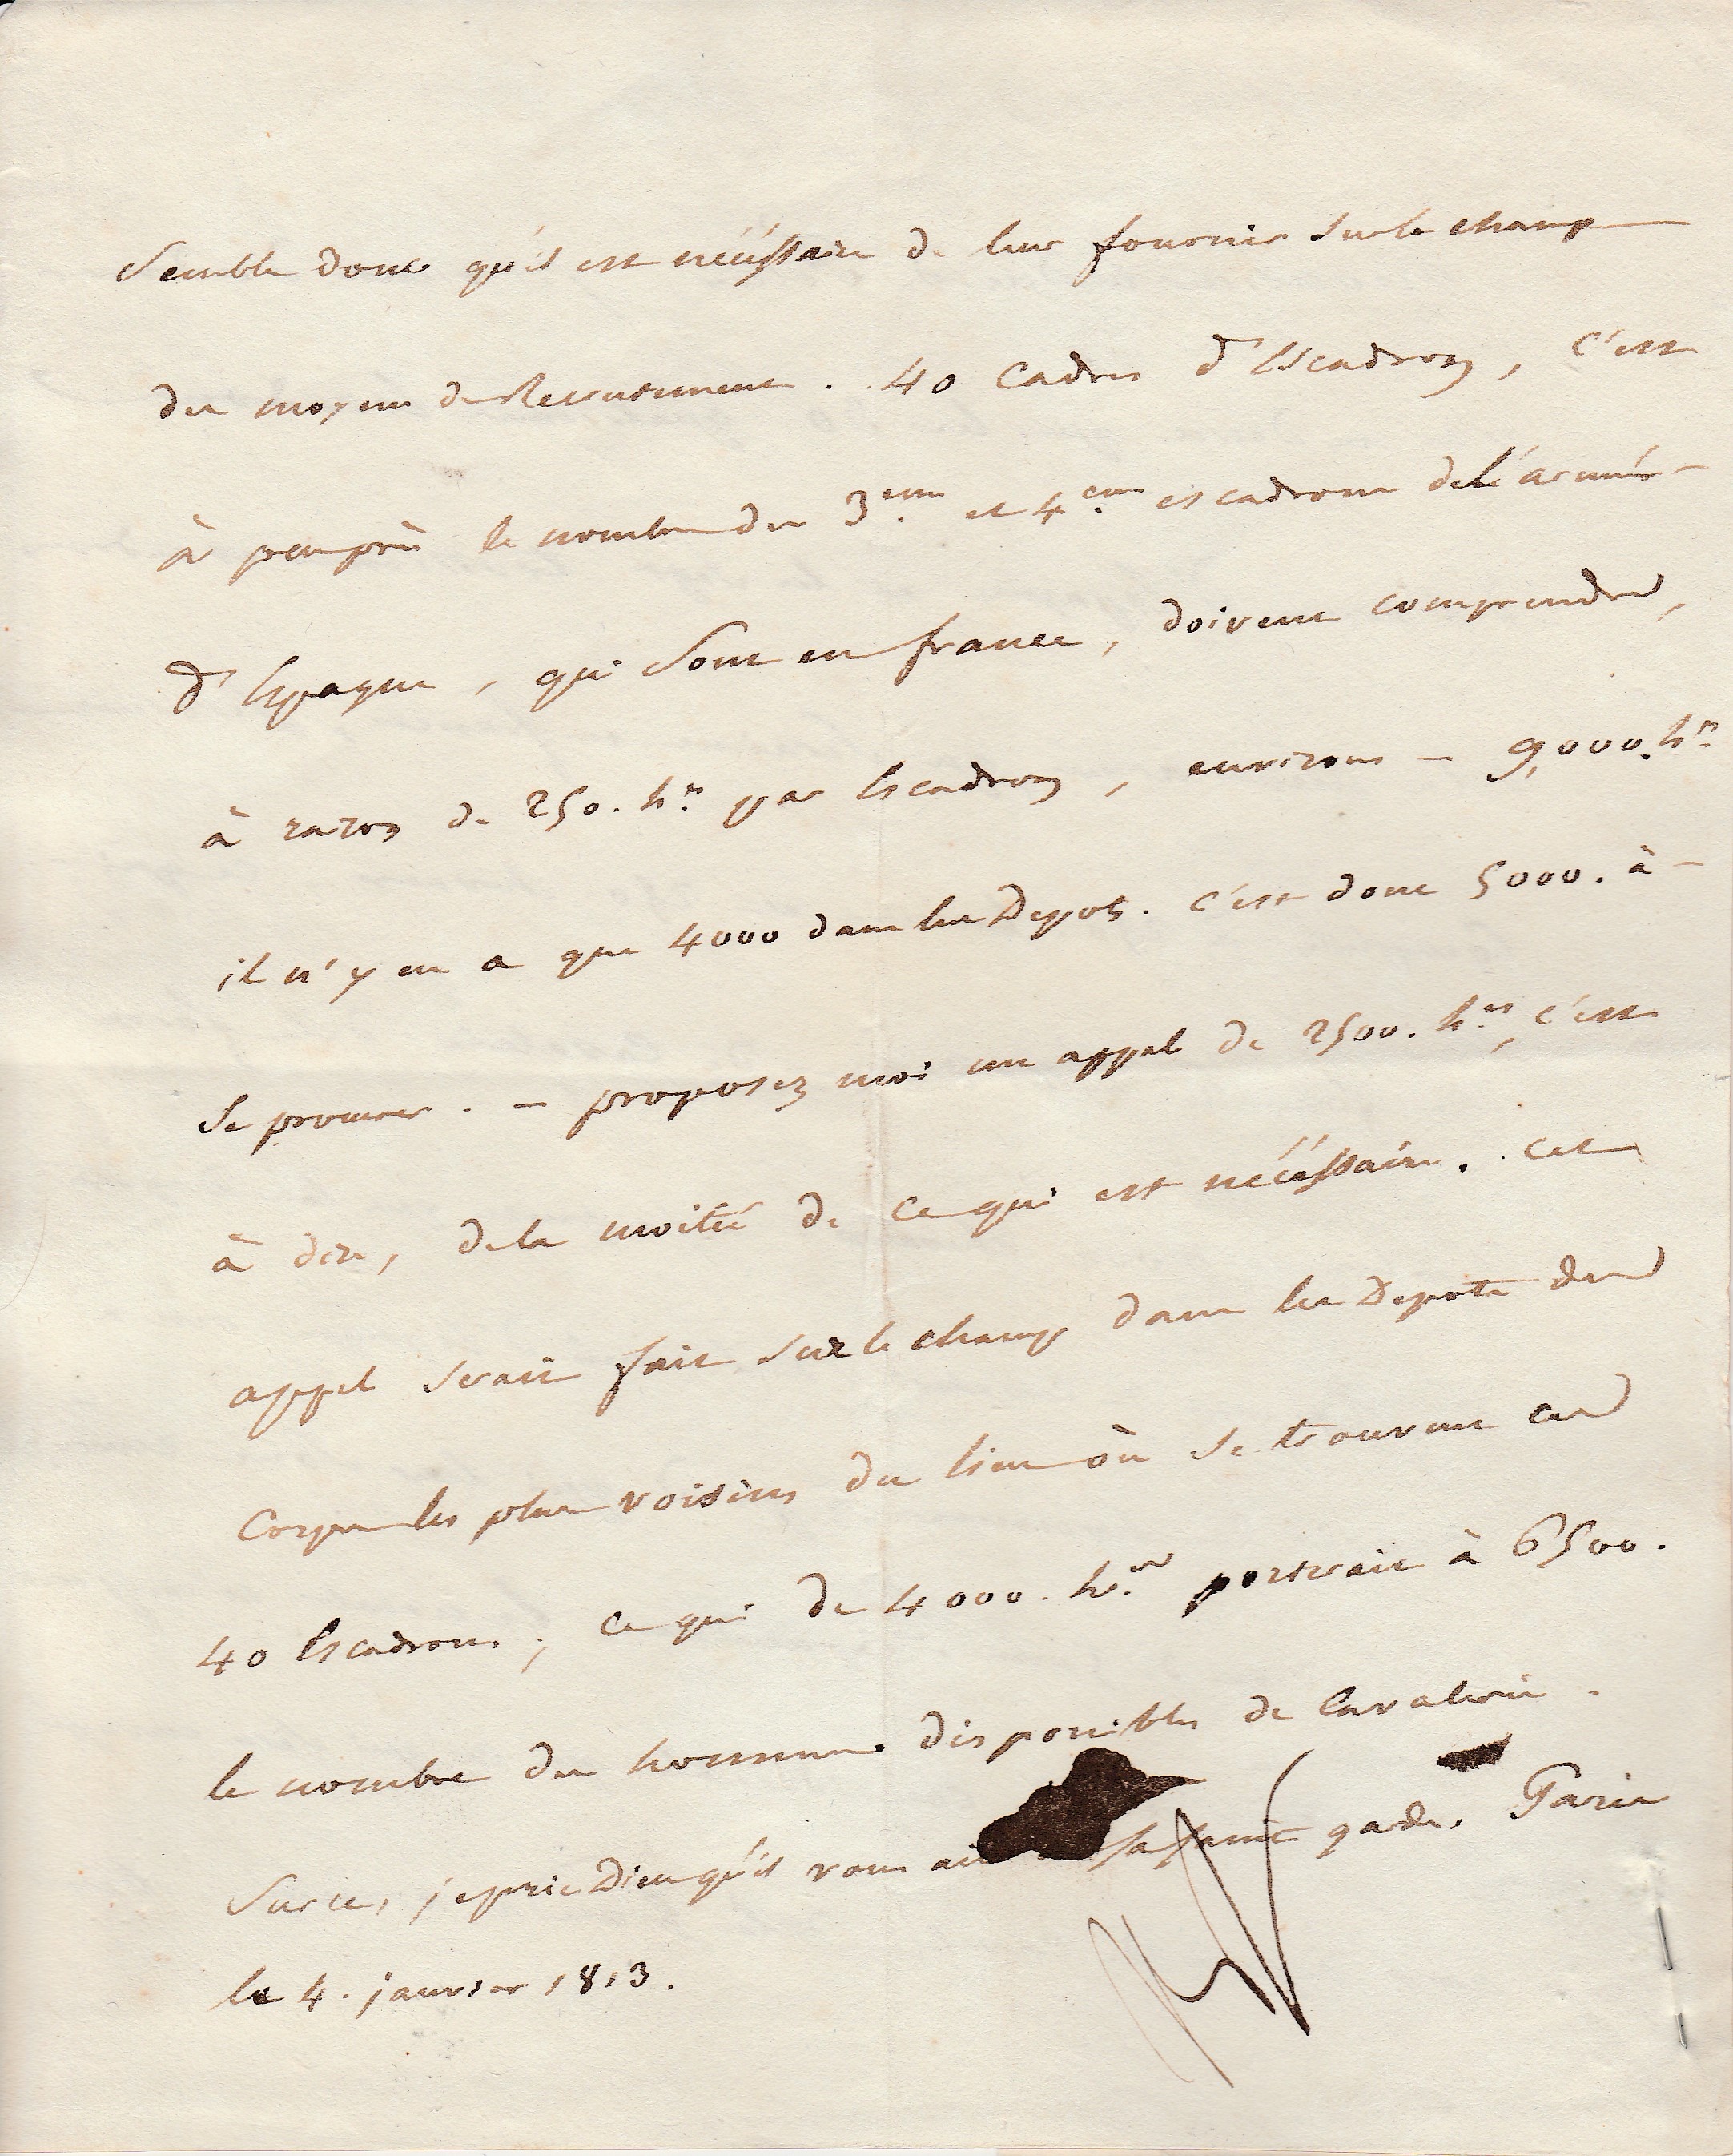 Semble donc qu'il est nécéssaire de leur fournir sur le champ
des moyens de Recrutement. 40 Cadres d'Escadron, c'est
à peu près le nombre des 3.eme et 4.eme escadrons de l'armée
d'Espagne, qui Sont en france, doivent comprendre,
à raison de 250. h.es par Escadron, environs - 9,000. h.es
il n'y en a que 4000 dans les Depots. c'est donc 5000. à
Se procurer. - proposez moi un appel de 2500. h.es, c'est
à dire, de la moitié de ce qui est nécéssaire. Cet
appel serait fait sur le champ dans les Depots des
Corps les plus voisins du lieu où se trouvent ces
40 Escadrons, ce qui de 4000. h.es porterait à 6500.
le nombre des hommes disponibles de Cavalerie.
Sur ce, je prie Dieu qu'il vous ait en sa sainte garde. Paris
le 4. janvier 1813.